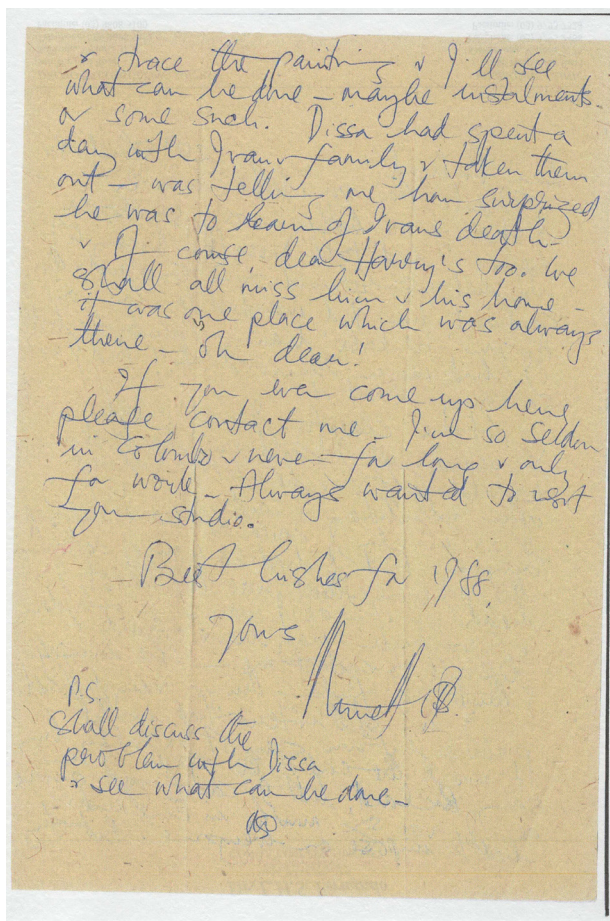 & trace the painting & I'll see
what can be done – maybe instalments
or some such. Dissa had spent a
day with Ivan & family & taken them
out – was telling me how surprized
he was to learn of Ivans death –
& Of course, dear Harry's too. We
shall all miss him & his home –
it was one place which was always
there – oh dear!
If you ever come up here
please contact me. I'm so seldom
in Colombo & never for long & only
for work – Always wanted to visit
your studio.
– Best wishes for 1988.
Yours
P.S.
Shall discuss the
problem with Dissa
& see what can be done –